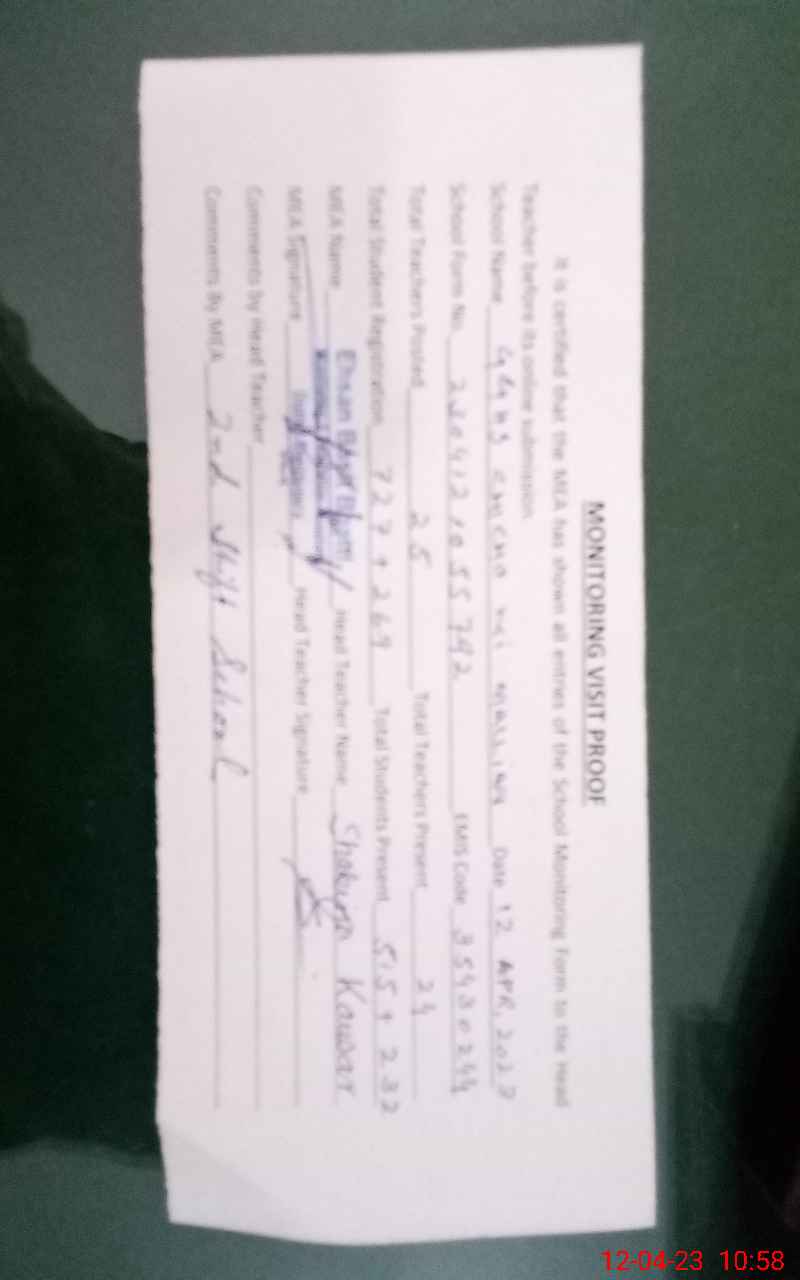 MONITORING VISIT PROOF
It is certified that the MEA has shown all entries of the School Monitoring Form to the Head
Teacher before its online submission.
School Name Date 12 APR, 2023
School Form No. 2304121055742 EMIS Code 35430244
Total Teachers Posted 25 Total Teachers Present 24
Total Student Registration 727 + 269 Total Students Present 515 + 232
MEA Name Ehsan Head Teacher Name Kausar
MEA Signature Head Teacher Signature
Comments by Head Teacher
Comments By MEA 2nd Shift School
12-04-23 10:58